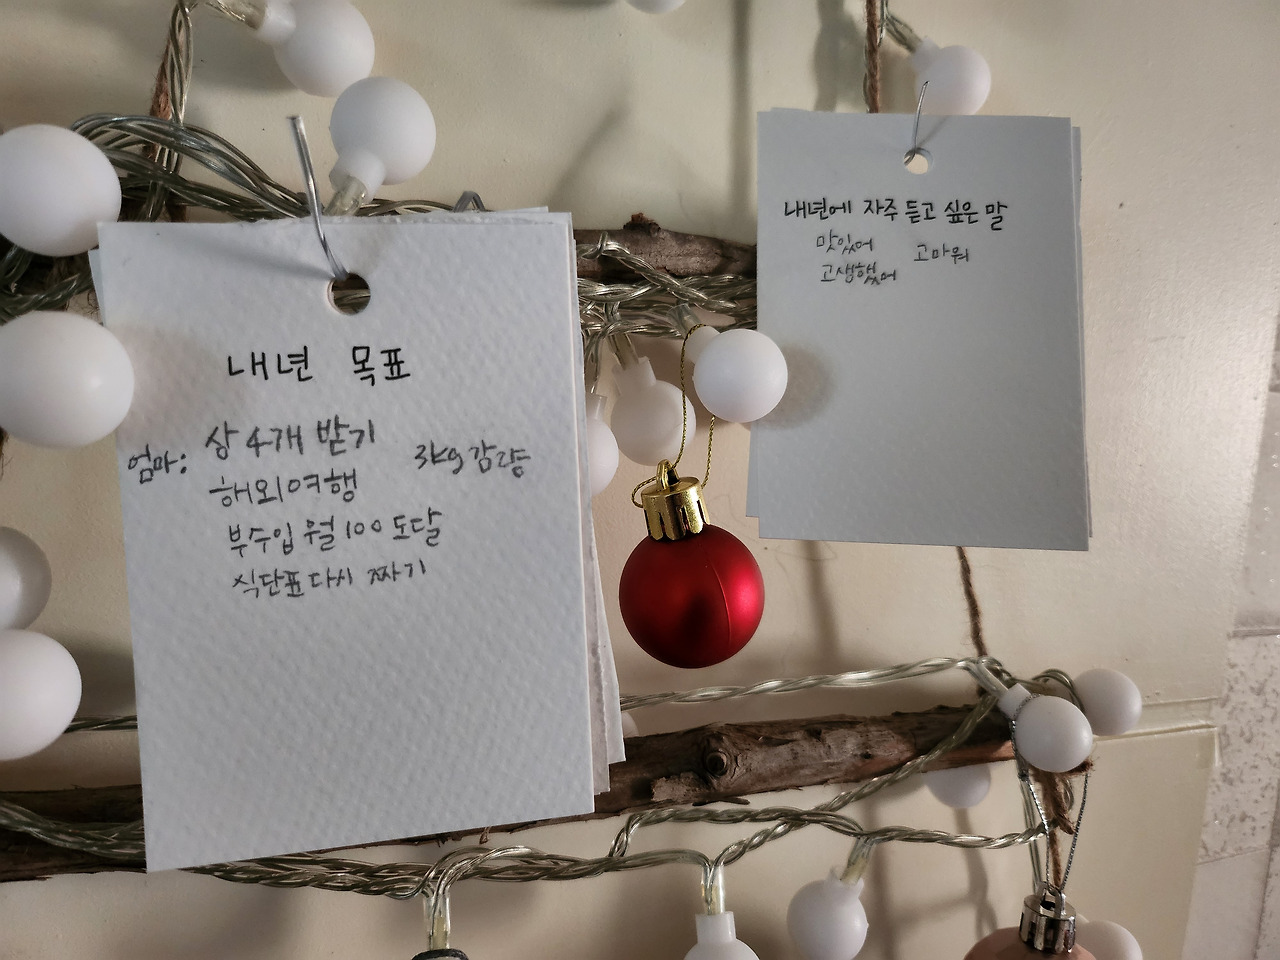 내년 목표
엄마: 상 4개 받기 3kg 감량
해외여행
부수입 월 100 도달
식단표 다시 짜기
내년에 자주 듣고 싶은 말
맛있어 고마워
고생했어